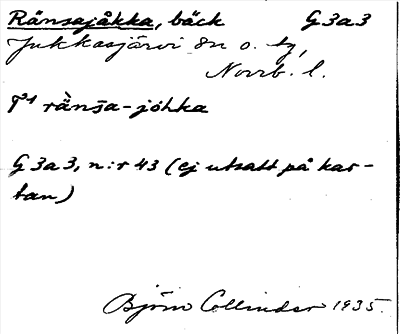 Ränsajåkka, bäck G3a3
Jukkasjärvi sn o. tg,
Norrb. l.
rànsa-jóhka
G3a3, n:r 43 (ej utsatt på kar-
tan)
Björn Collinder 1935.